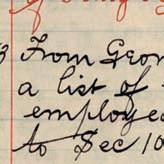 of
3 From Geor
a list of
employe
to Dec 10